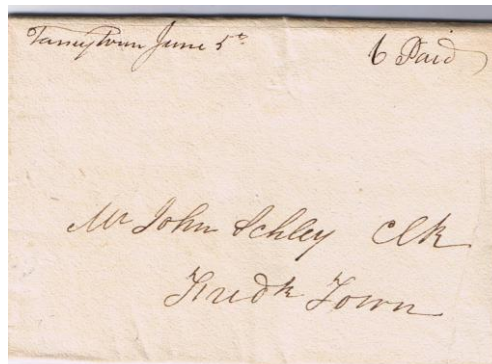 Taneytown June 5th
6 Paid
Mr John Schley Clk
Fredk Town